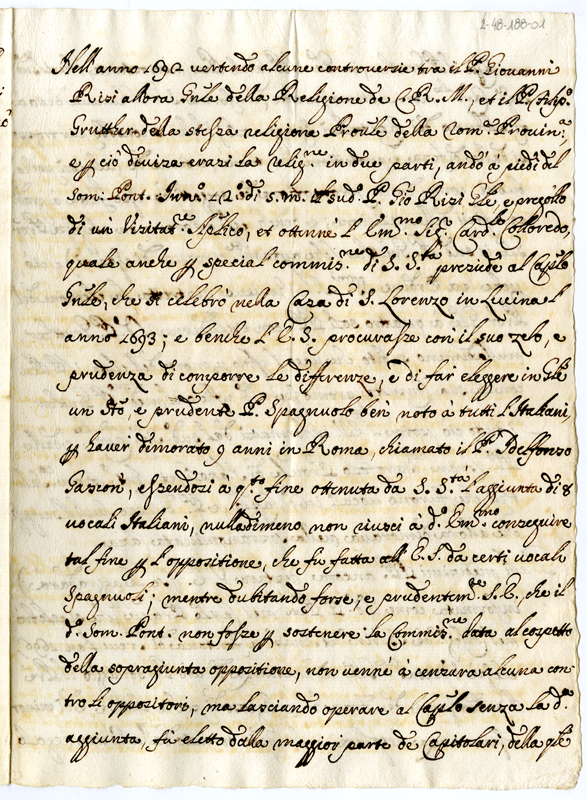 2-48-188-01
Nell'anno 1692 vertendo alcune controversie tra il P. Giovanni
Rizi allora Gnle della Religione de C.R.M., et il P.
Grutther della stessa religione Proule della Rom.ª Provin.ª,
e p ciò diviza erazi la relig.ne in due parti, andò à piedi del
Som. Pont. Inn.º 12.º di s.m. il sud.º P. Gio Rizi Gle, e pregollo
di un Vizitat.re Aplico, et ottenné l'Em.mo Sig.r Card.le Colloredo,
quale anche p special commis.ne di S. S.tà prezide al Caplo
Gnle, che si celebrò nella Caza di S. Lorenzo in Lucina l'
anno 1693; e benche l'E.S. procurasse con il suo zelo, e
prudenza di comporre le differenze, e di far eleggere in Gle
un dto, e prudente P. Spagnuolo ben noto à tutti l'Italiani,
p haver dimorato 9 anni in Roma, chiamato il P. Ildeffonzo
Gascon, essendosi à q.to fine ottenuta da S. S.tà l'aggiunta di 8
vocali Italiani, nulladimeno non riusci à d.º Em.mo conseguire
tal fine p l'oppositione, che fu fatta all' E.S. da certi vocali
Spagnuoli; mentre dubitando forse, e prudentem.te S.E., che il
d.º Som. Pont. non fosse p sostenere la Commis.ne data al cospetto
della sopragiunta oppositione, non venné à cenzura alcuna con
tro li oppositori, ma lasciando operare al Caplo senza la d.ª
aggiunta, fù eletto dalla maggior parte de Capitolari, della qle